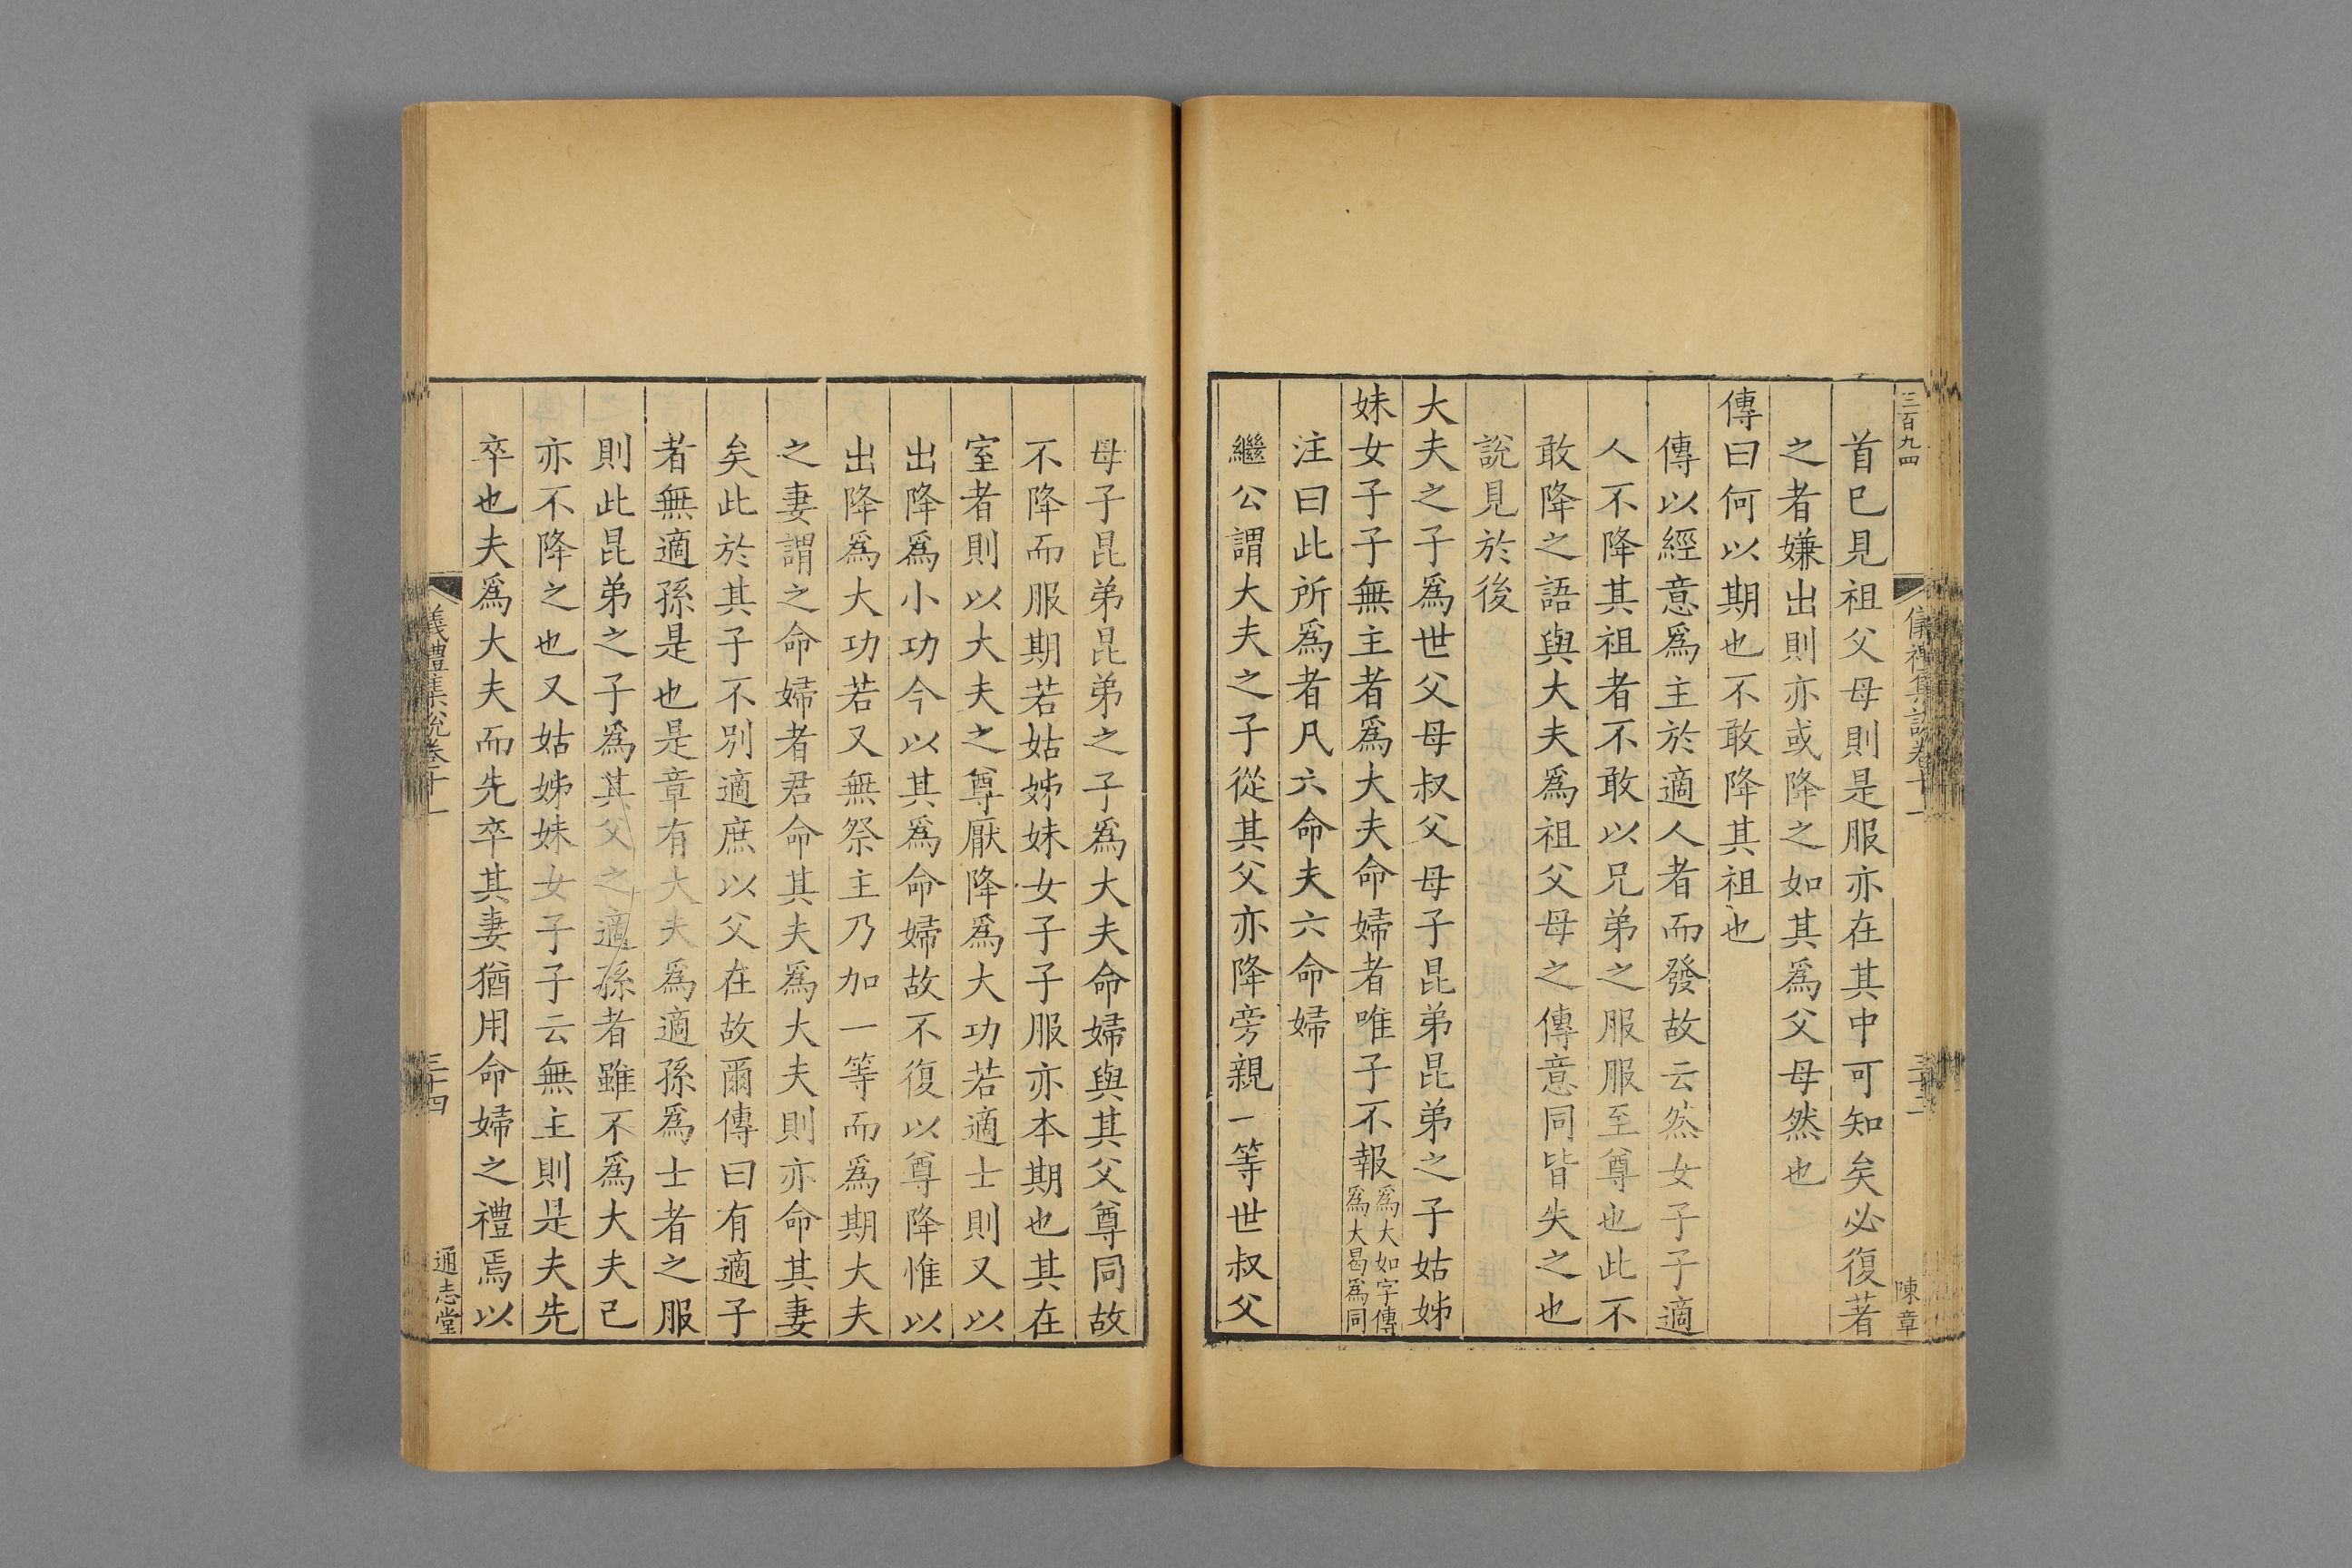 三百九四
儀禮集說卷十一
三十三
陳章
首已見祖父母則是服亦在其中可知矣必復著
之者嫌出則亦或降之如其爲父母然也
傳曰何以期也不敢降其祖也
傳以經意爲主於適人者而發故云然女子子適
人不降其祖者不敢以兄弟之服服至尊也此不
敢降之語與大夫爲祖父母之傳意同皆失之也
說見於後
大夫之子爲世父母叔父母子昆弟昆弟之子姑姊
妹女子子無主者爲大夫命婦者唯子不報爲大如字傳爲大曷爲同
注曰此所爲者凡六命夫六命婦
繼公謂大夫之子從其父亦降旁親一等世叔父
母子昆弟昆弟之子爲大夫命婦與其父尊同故
不降而服期若姑姊妹女子子服亦本期也其在
室者則以大夫之尊厭降爲大功若適士則又以
出降爲小功今以其爲命婦故不復以尊降惟以
出降爲大功若又無祭主乃加一等而爲期大夫
之妻謂之命婦者君命其夫爲大夫則亦命其妻
矣此於其子不別適庶以父在故爾傳曰有適子
者無適孫是也是章有大夫爲適孫爲士者之服
則此昆弟之子爲其父之適孫者雖不爲大夫已
亦不降之也又姑姊妹女子子云無主則是夫先
卒也夫爲大夫而先卒其妻猶用命婦之禮焉以
儀禮集說卷十一
三十四
通志堂